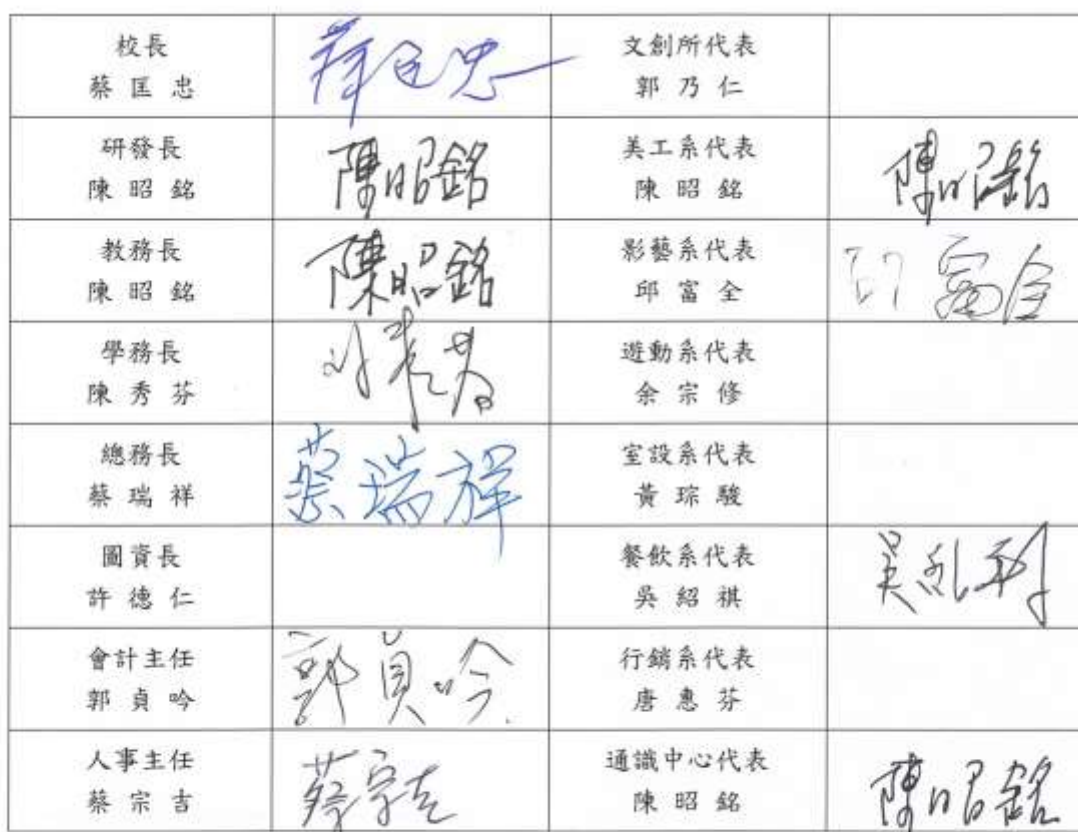 校長
蔡匡忠
蔡匡忠
文創所代表
郭乃仁
研發長
陳昭銘
陳昭銘
美工系代表
陳昭銘
陳昭銘
教務長
陳昭銘
陳昭銘
影藝系代表
邱富全
邱富全
學務長
陳秀芬
遊動系代表
余宗修
總務長
蔡瑞祥
蔡瑞祥
室設系代表
黃琮駿
圖資長
許德仁
餐飲系代表
吳紹祺
會計主任
郭貞吟
郭貞吟
行銷系代表
唐惠芬
人事主任
蔡宗吉
蔡宗吉
通識中心代表
陳昭銘
陳昭銘